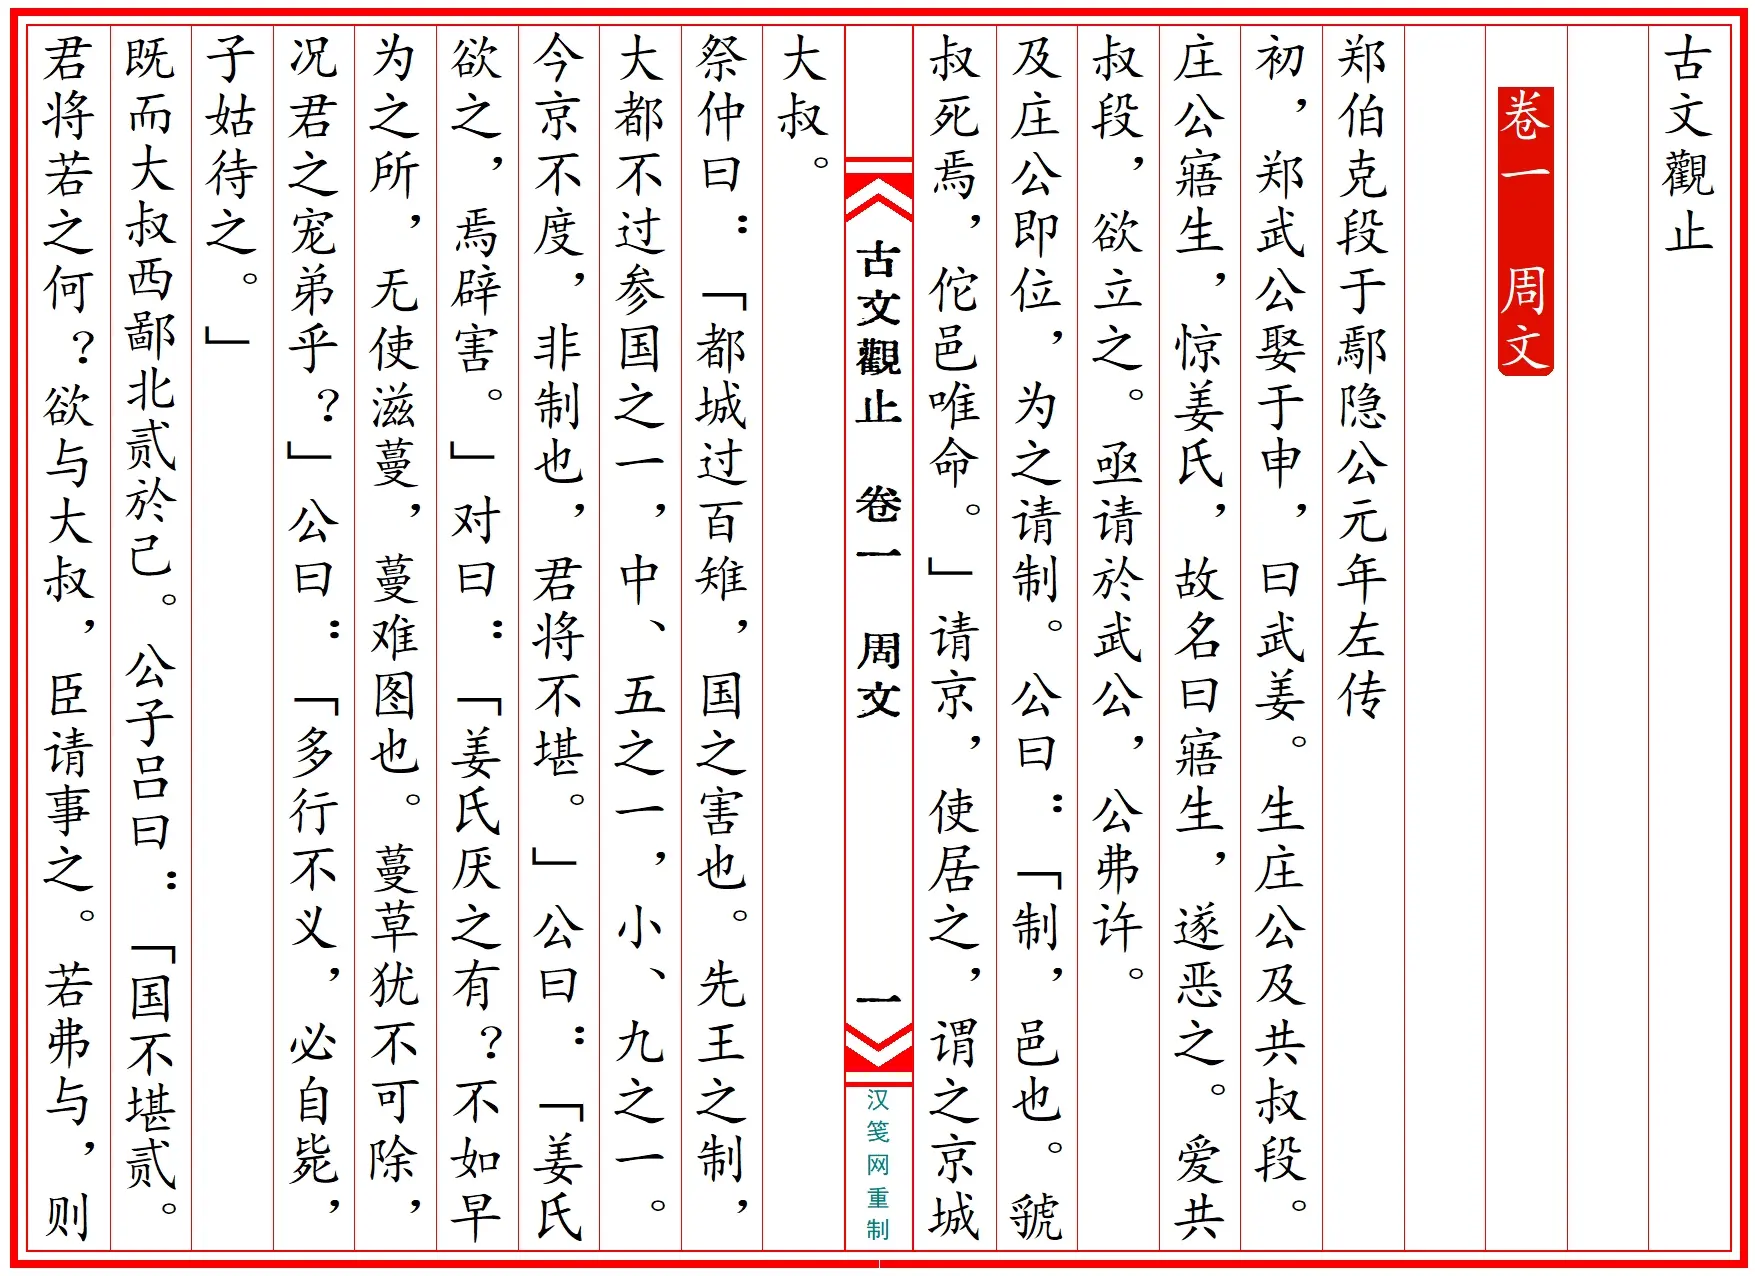 古文觀止
卷一　周文
郑伯克段于鄢隐公元年左传
初，郑武公娶于申，曰武姜。生庄公及共叔段。
庄公寤生，惊姜氏，故名曰寤生，遂恶之。爱共
叔段，欲立之。亟请於武公，公弗许。
及庄公即位，为之请制。公曰：「制，邑也。虢
叔死焉，佗邑唯命。」请京，使居之，谓之京城
古文觀止　卷一　周文　一
汉笺网重制
大叔。
祭仲曰：「都城过百雉，国之害也。先王之制，
大都不过参国之一，中、五之一，小、九之一。
今京不度，非制也，君将不堪。」公曰：「姜氏
欲之，焉辟害。」对曰：「姜氏厌之有？不如早
为之所，无使滋蔓，蔓难图也。蔓草犹不可除，
况君之宠弟乎？」公曰：「多行不义，必自毙，
子姑待之。」
既而大叔西鄙北贰於己。公子吕曰：「国不堪贰。
君将若之何？欲与大叔，臣请事之。若弗与，则